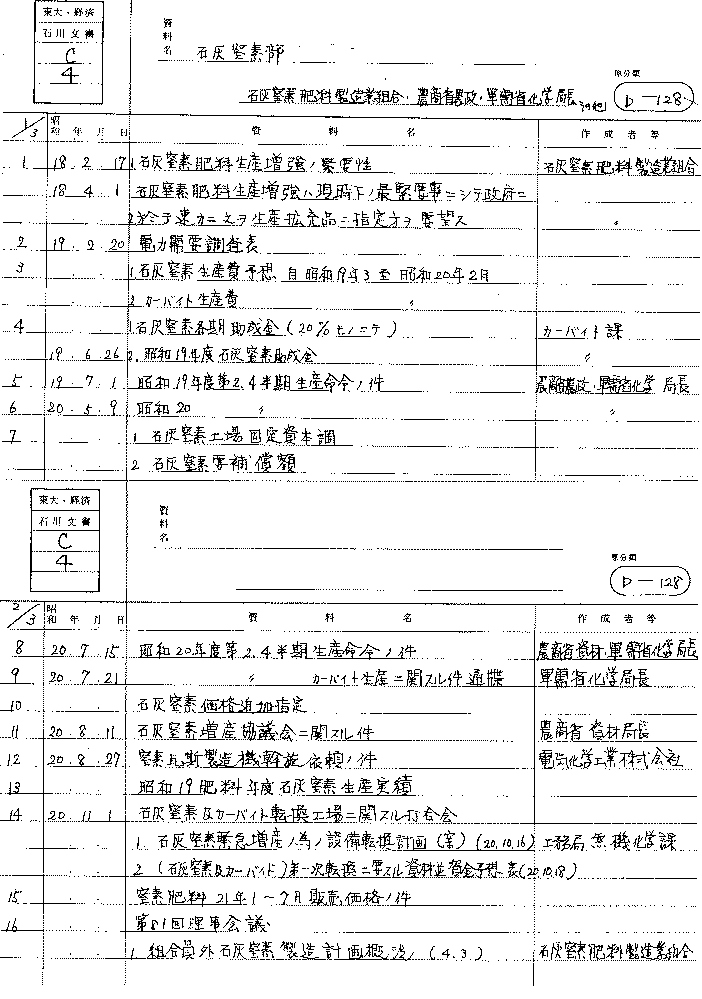 東大・経済
石川文書
C
4
資料名 石灰窒素部
石灰窒素肥料製造業組合・農商省農政・軍需省化学局長
原分類
D-128
1/3 昭和 年 月 日 資料名 作成者等
1 18.2.17 1.石灰窒素肥料生産増強ノ緊要性 石灰窒素肥料製造業組合
18 4.1 石灰窒素肥料生産増強ハ現時下ノ最緊要事ニシテ政府ニ
2. 速カニ之ヲ生産拡充品ニ指定方ヲ要望ス 〃
2 19.2.20 電力需要調査表
3 1.石灰窒素生産費予想 自昭和19年3至昭和20年2月
2 カーバイト生産費 〃
4 1.石灰窒素各期助成金(20%モノニテ) カーバイト課
19.6.26 2.昭和19年度石灰窒素助成金 〃
5 19.7.1 昭和19年度第2.4半期生産命令ノ件 農商農政・軍需省化学局長
6 20.5.9 昭和20 〃 〃
7 1 石灰窒素工場固定資本調
2 石灰窒素要補償額
東大・経済
石川文書
C
4
資料名
原分類
D-128
2/3 昭和 年 月 日 資料名 作成者等
8 20.7.15 昭和20年度第2.4半期生産命令ノ件 農商省資材・軍需省化学局長
9 20.7.21 〃 カーバイト生産ニ関スル件通牒 軍需省化学局長
10 石灰窒素価格追加指定
11 20.8.11 石灰窒素増産協議会ニ関スル件 農商省資材局長
12 20.8.27 窒素瓦斯製造機斡旋依頼ノ件 電気化学工業株式会社
13 昭和19肥料年度石灰窒素生産実績
14 20 11 1 石灰窒素及カーバイト転換工場ニ関スル打合会
1 石灰窒素緊急増産ノ為ノ設備転換計画(案)(20.10.16) 工務局無機化学課
2 (石灰窒素及カーバイド)第一次転換ニ要スル資材並資金予想表(20.10.18)
15 窒素肥料21年1~7月販売価格ノ件
16 第81回理事会議
1 組合員外石灰窒素製造計画概況(4.3) 石灰窒素肥料製造業組合